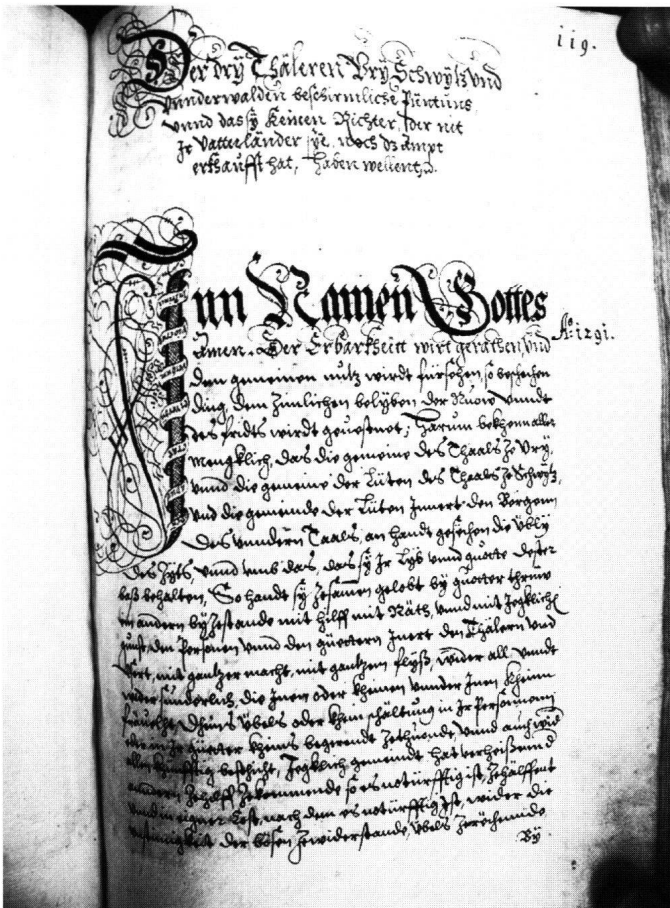 119.
Der dry Thäleren Vry Schwytz vnd
vnderwalden beschirmliche Püntnus,
vnnd das sy keinen Richter, der nit
Jr Vatterländer sye, noch dz ampt
erkhaufft hat, haben wellent.
Inn Namen Gottes
A.º 1291.
Amen. Der Erbarkheitt wirt gerathen, vnd
dem gemeinen nütz wirdt fürsehen, so beschechen
ding, dem zimlichen belyben der Ruow vnndt
des fridts wirdt geuestnet; Harum bekhenn aller
mengklich, das die gemeine des Thaals ze Vry,
vnnd die gemeine der Lüten des Thaals ze Schwytz,
vnd die gemeinde der Lüten Jnnert den Bergenn
des vnndern Taals, an handt gesehen die übly
des Zyts, vnnd vmb das, das sy Jr Lyb vnnd guotte dester
baß behalten, So handt sy zesamen gelobt by guotter threuw
ein andern by zestande mit hilff mit Räth, vnnd mit Jegklichen
gunst, den Personen vnnd den güettern Jnert den Thälern vnd
vßert, mit gantzer macht, mit gantzem flyß, wider all vnndt
wider sunderlich, die Jnen oder kheinen vnnder Jnen kheinn
oder in Jr güetter kheins begerendt zethuonde, vnnd auch wie
allen khünfftig beschicht, Jegklich gemeindt hat verheißenn d
andern ze hilff ze kommende so es notürfftig ist, ze hälffent
vnnd in eigner Cost, nach dem es notürfftig ist, wider die
der bösen ze widerstande, übels ze rächennde
By